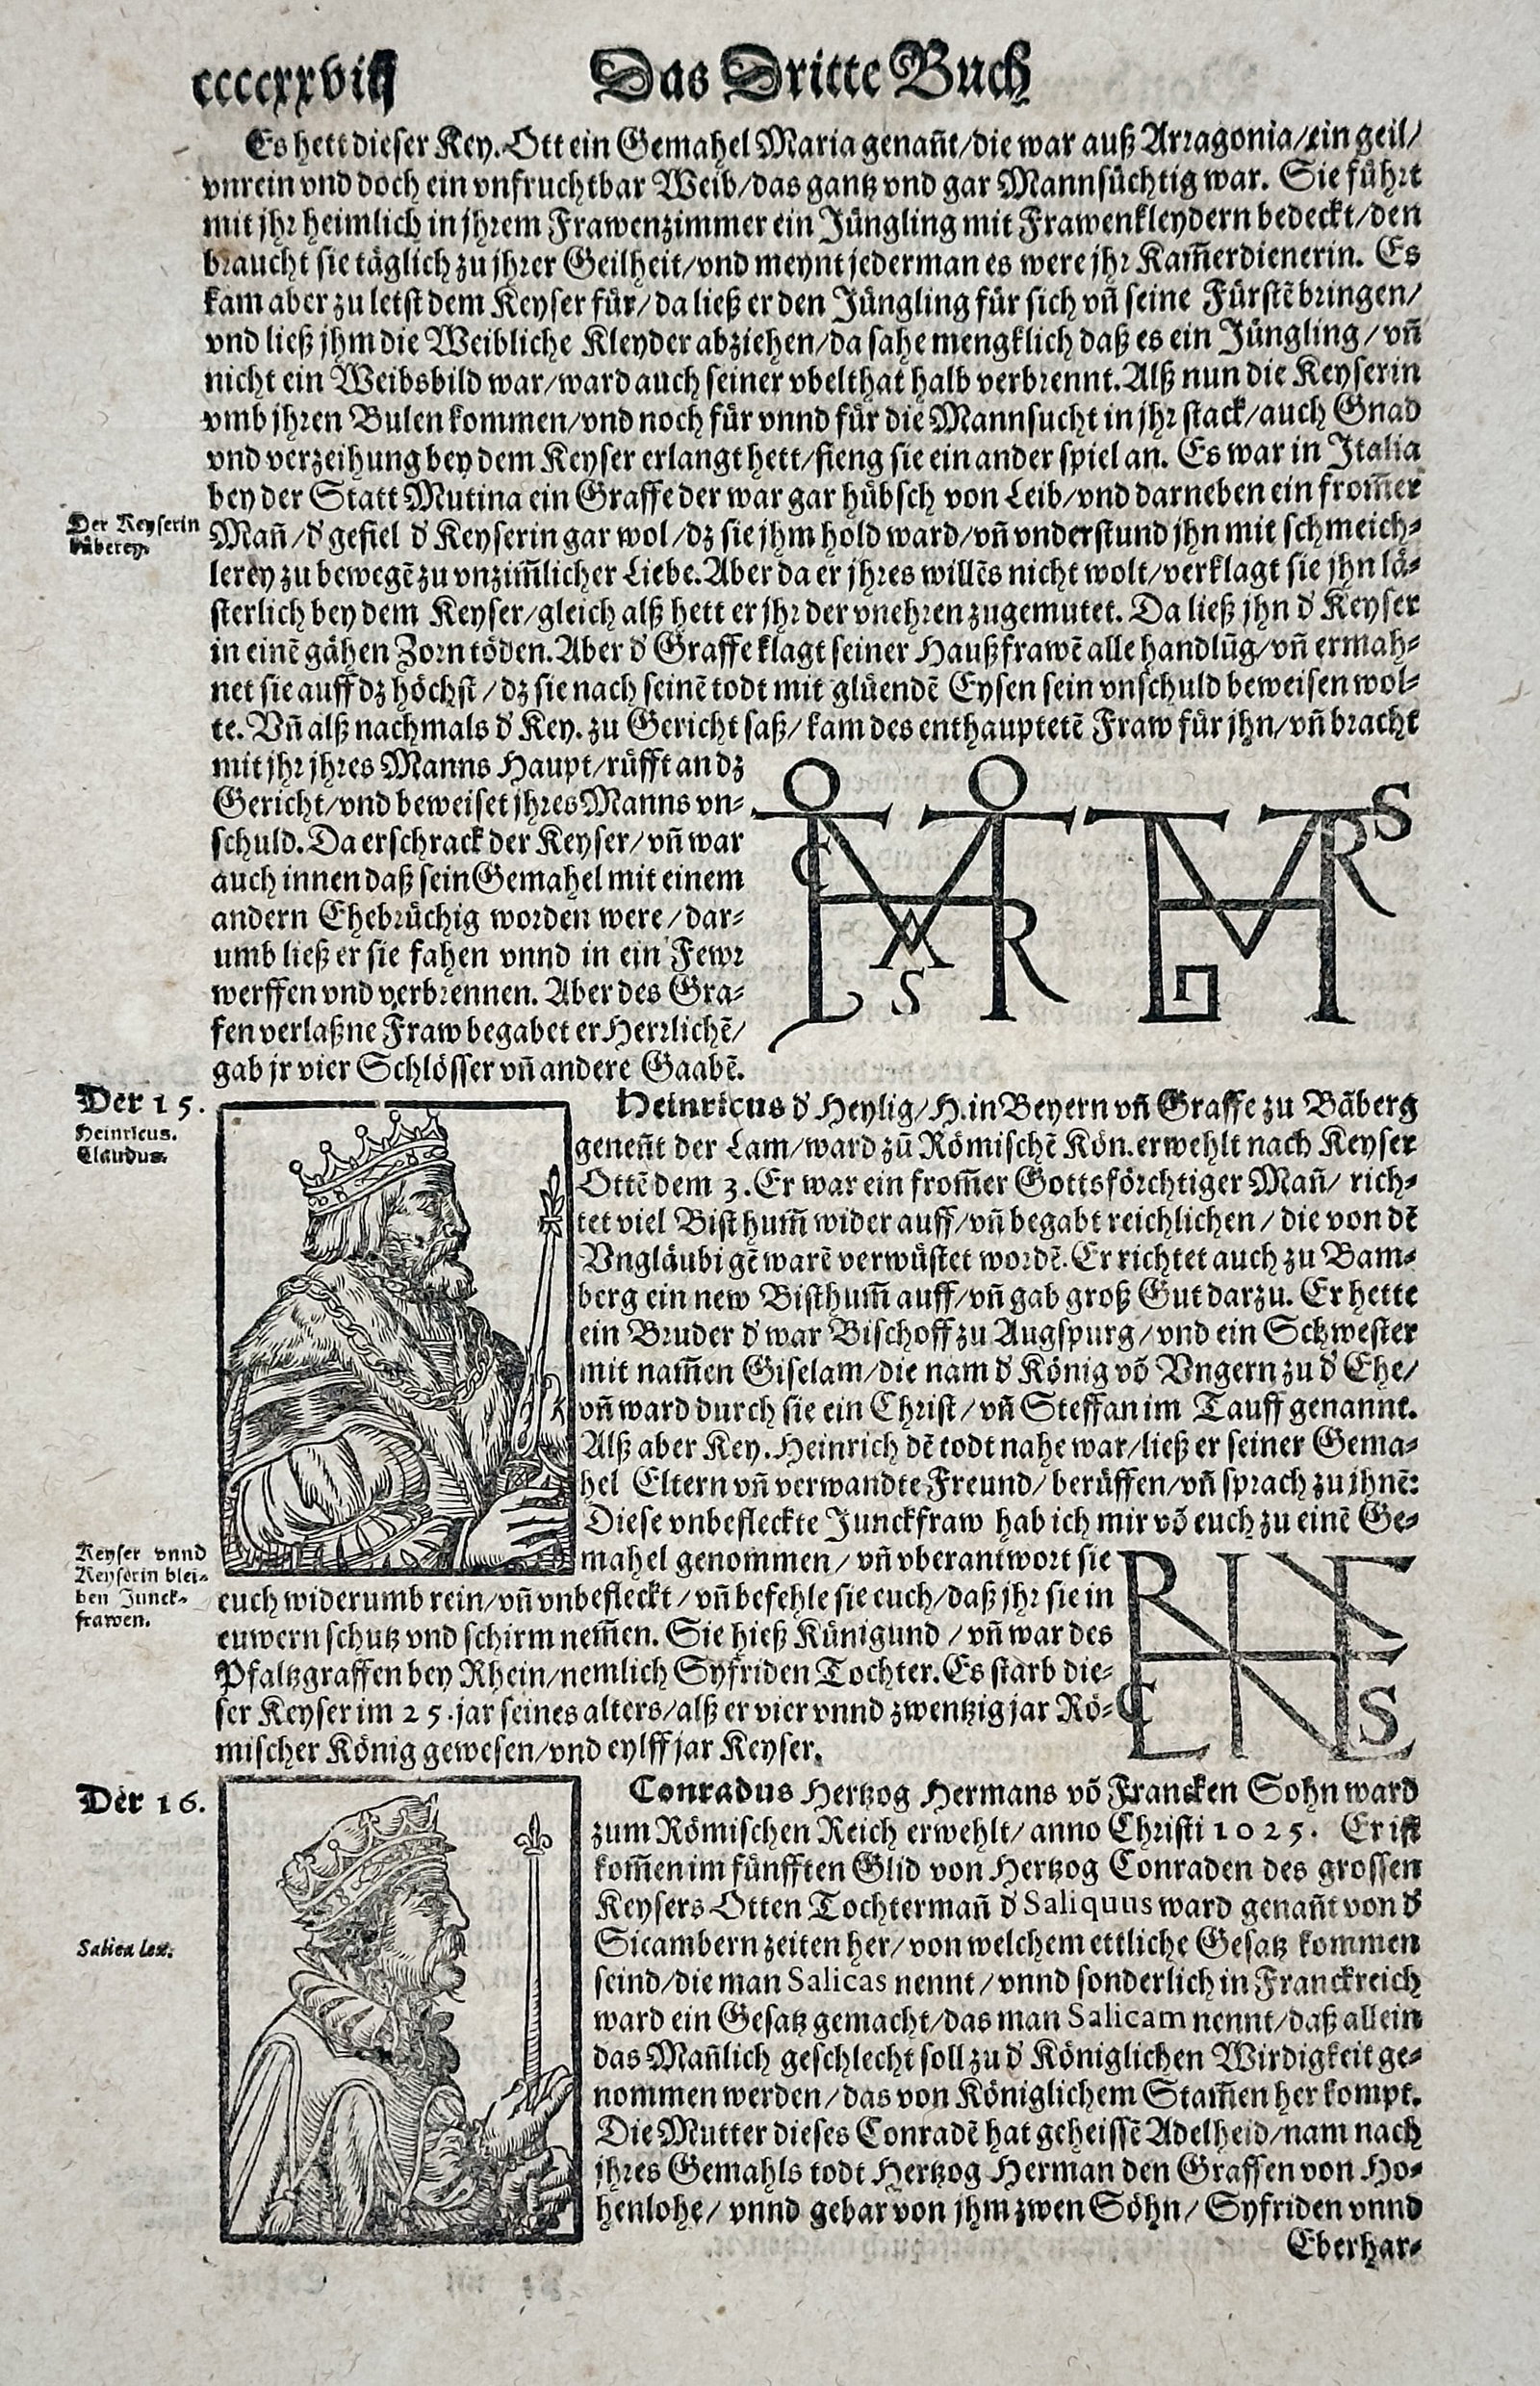 ccccxxviij Das Dritte Buch
Es hett dieser Key. Ott ein Gemahel Maria genañt/die war auß Arragonia/ein geil/
vnrein vnd doch ein vnfruchtbar Weib/das gantz vnd gar Mannsüchtig war. Sie führt
mit jhr heimlich in jhrem Frawenzimmer ein Jüngling mit Frawenkleydern bedeckt/den
braucht sie täglich zu jhrer Geilheit/vnd meynt jederman es were jhr Kam̃erdienerin. Es
kam aber zu letst dem Keyser für/da ließ er den Jüngling für sich vñ seine Fürstẽ bringen/
vnd ließ jhm die Weibliche Kleyder abziehen/da sahe mengklich daß es ein Jüngling/vñ
nicht ein Weibsbild war/ward auch seiner vbelthat halb verbrennt. Alß nun die Keyserin
vmb jhren Bulen kommen/vnd noch für vnnd für die Mannsucht in jhr stack/auch Gnad
vnd verzeihung bey dem Keyser erlangt hett/fieng sie ein ander spiel an. Es war in Italia
bey der Statt Mutina ein Graffe der war gar hübsch von Leib/vnd darneben ein from̃er
Der Keyserin
büberey.
Mañ/d' gefiel d' Keyserin gar wol/dz sie jhm hold ward/vñ vnderstund jhn mit schmeich-
lerey zu bewegẽ zu vnzim̃licher Liebe. Aber da er jhres willẽs nicht wolt/verklagt sie jhn lä-
sterlich bey dem Keyser/gleich alß hett er jhr der vnehren zugemutet. Da ließ jhn d' Keyser
in einẽ gähen Zorn töden. Aber d' Graffe klagt seiner Haußfrawẽ alle handlũg/vñ ermah-
net sie auff dz höchst/dz sie nach seinẽ todt mit glüendẽ Eysen sein vnschuld beweisen wol-
te. Vñ alß nachmals d' Key. zu Gericht saß/kam des enthauptetẽ Fraw für jhn/vñ bracht
mit jhr jhres Manns Haupt/rüfft an dz
Gericht/vnd beweiset jhres Manns vn-
schuld. Da erschrack der Keyser/vñ war
auch innen daß sein Gemahel mit einem
andern Ehebrüchig worden were/dar-
umb ließ er sie fahen vnnd in ein Fewr
werffen vnd verbrennen. Aber des Gra-
fen verlaßne Fraw begabet er Herrlichẽ/
gab jr vier Schlösser vñ andere Gaabẽ.
Der 15.
Heinricus.
Claudus.
Heinricus d' Heylig/H. in Beyern vñ Graffe zu Bãberg
geneñt der Lam/ward zũ Römischẽ Kön. erwehlt nach Keyser
Ottẽ dem 3. Er war ein from̃er Gottsförchtiger Mañ/rich-
tet viel Bisthum̃ wider auff/vñ begabt reichlichen/die von dẽ
Vngläubigẽ warẽ verwüstet wordẽ. Er richtet auch zu Bam-
berg ein new Bisthum̃ auff/vñ gab groß Gut darzu. Er hette
ein Bruder d' war Bischoff zu Augspurg/vnd ein Schwester
mit nam̃en Giselam/die nam d' König võ Vngern zu d' Ehe/
vñ ward durch sie ein Christ/vñ Steffan im Tauff genannt.
Alß aber Key. Heinrich dẽ todt nahe war/ließ er seiner Gema-
hel Eltern vñ verwandte Freund/berüffen/vñ sprach zu jhnẽ:
Diese vnbefleckte Junckfraw hab ich mir võ euch zu einẽ Ge-
mahel genommen/vñ vberantwort sie
Keyser vnnd
Keyserin blei-
ben Junck-
frawen.
euch widerumb rein/vñ vnbefleckt/vñ befehle sie euch/daß jhr sie in
euwern schutz vnd schirm nem̃en. Sie hieß Künigund/vñ war des
Pfaltzgraffen bey Rhein/nemlich Syfriden Tochter. Es starb die-
ser Keyser im 25. jar seines alters/alß er vier vnnd zwentzig jar Rö-
mischer König gewesen/vnd eylff jar Keyser.
Der 16.
Conradus Hertzog Hermans võ Francken Sohn ward
zum Römischen Reich erwehlt/anno Christi 1025. Er ist
kom̃en im fünfften Glid von Hertzog Conraden des grossen
Keysers Otten Tochtermañ d' Saliquus ward genañt von d'
Salica lex.
Sicambern zeiten her/von welchem ettliche Gesatz kommen
seind/die man Salicas nennt/vnnd sonderlich in Franckreich
ward ein Gesatz gemacht/das man Salicam nennt/daß allein
das Mañlich geschlecht soll zu d' Königlichen Wirdigkeit ge-
nommen werden/das von Königlichem Stam̃en her kompt.
Die Mutter dieses Conradẽ hat geheissẽ Adelheid/nam nach
jhres Gemahls todt Hertzog Herman den Graffen von Ho-
henlohe/vnnd gebar von jhm zwen Söhn/Syfriden vnnd
Eberhar-